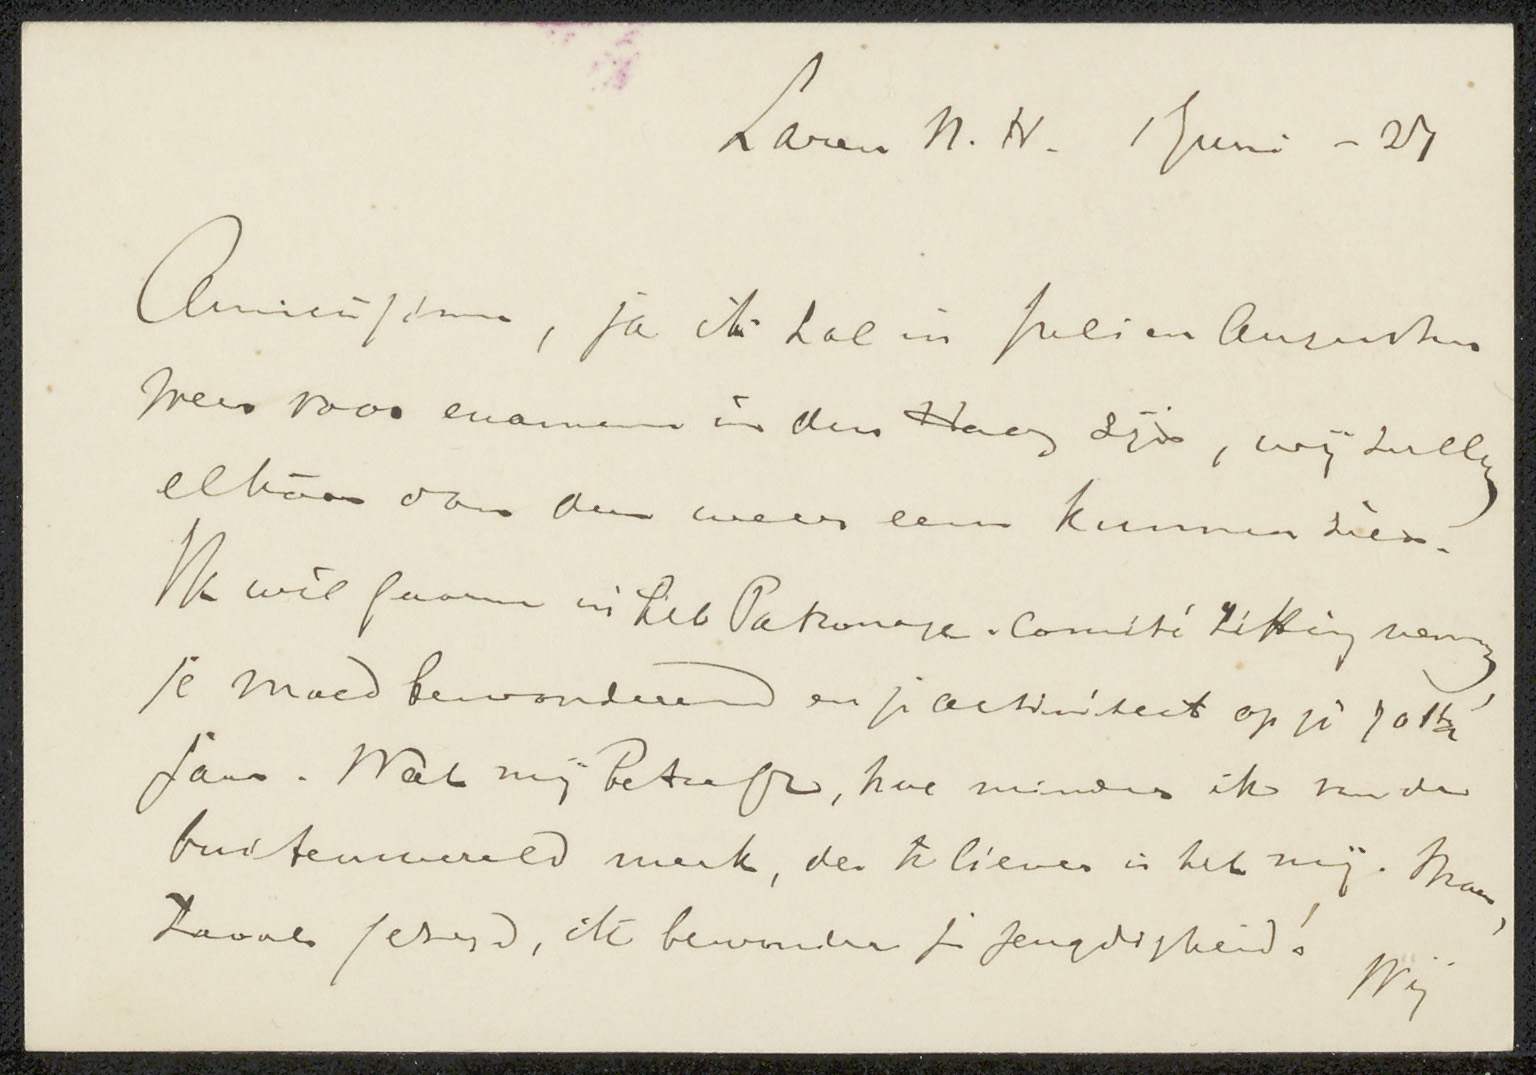 Laren N.H. 1 Juni - 27
Amicissime, ja ik zal in Juli en Augustus
weer voor examens in den Haag zijn, wij zullen
elkaar dan dus weer eens kunnen zien.
Ik wil gaarne in het Patronage-Comité zitting nemen,
je moed bewonderend en je activiteit op je 70ste
jaar. Wat mij betreft, hoe minder ik van de
buitenwereld merk, des te liever is het mij. Maar,
zooals gezegd, ik bewonder je jeugdigheid!
Wij